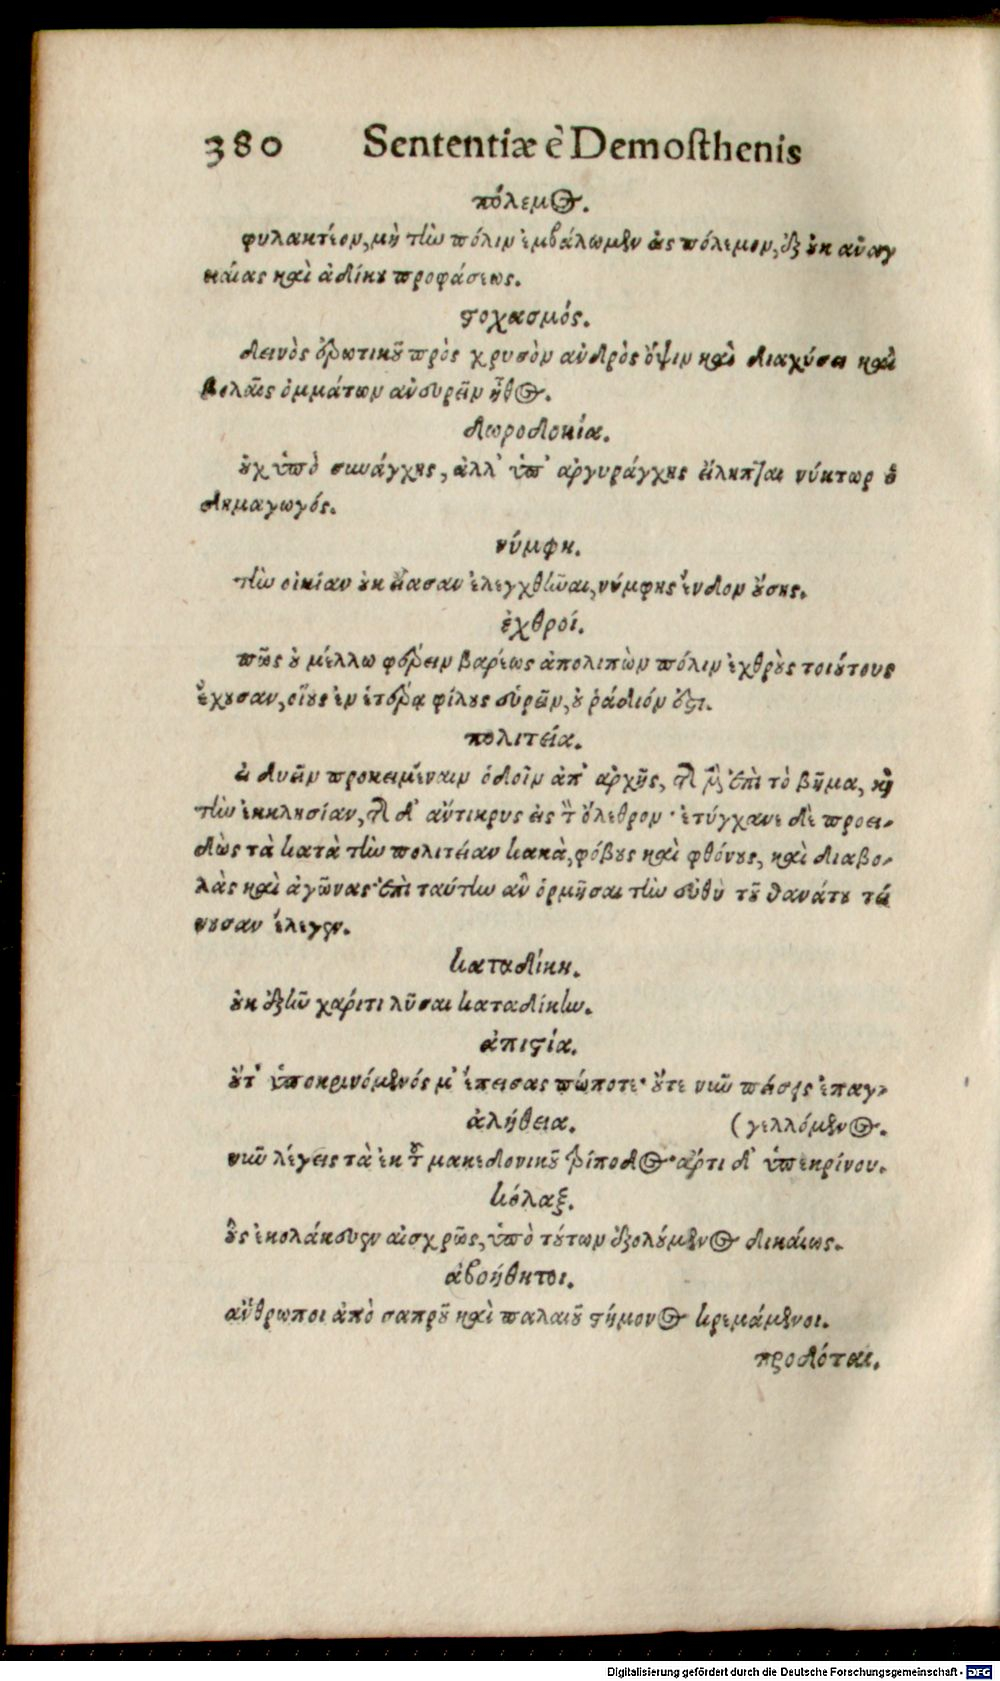 380 Sententiæ è Demosthenis
πόλεμος.
φυλακτέον, μὴ τὴν πόλιν ἐμβάλωμεν εἰς πόλεμον, ἐξ οὐκ ἀναγ
καίας καὶ ἀδίκου προφάσεως.
στοχασμός.
δεινὸς ἐρωτικοῦ πρὸς χρυσὸν ἀνδρὸς ὄψιν καὶ διαχύσει καὶ
βολαῖς ὀμμάτων ἀνευρεῖν ἦθος.
δωροδοκία.
οὐχ ὑπὸ συνάγχης, ἀλλ' ὑπ' ἀργυράγχης εἴληπται νύκτωρ ὁ
δημαγωγός.
νύμφη.
τὴν οἰκίαν οὐκ εἴασαν ἐλεγχθῆναι, νύμφης ἔνδον οὔσης.
ἐχθροί.
πῶς οὐ μέλλω φέρειν βαρέως ἀπολιπὼν πόλιν ἐχθροὺς τοιούτους
ἔχουσαν, οἵους ἐν ἑτέρᾳ φίλους εὑρεῖν, οὐ ῥάδιόν ἐστι.
πολιτεία.
εἰ δυεῖν προκειμέναιν ὁδοῖν ἀπ' ἀρχῆς, τῆς μὲν ἐπὶ τὸ βῆμα, καὶ
τὴν ἐκκλησίαν, τῆς δ' ἄντικρυς εἰς τὸν ὄλεθρον· ἐτύγχανε δὲ προει-
δὼς τὰ κατὰ τὴν πολιτείαν κακὰ, φόβους καὶ φθόνους, καὶ διαβο-
λὰς καὶ ἀγῶνας· ἐπὶ ταύτην ἂν ὁρμῆσαι τὴν εὐθὺ τοῦ θανάτου τεί
νουσαν ἔλεγεν.
καταδίκη.
οὐκ ἐξῆν χάριτι λῦσαι καταδίκην.
ἀπιστία.
οὔτ' ὑποκρινόμενός μ' ἔπεισας πώποτε· οὔτε νῦν πείσεις ἐπαγ-
ἀλήθεια. (γελλόμενος.
νῦν λέγεις τὰ ἐκ τοῦ μακεδονικοῦ τρίποδος· ἄρτι δ' ὑπεκρίνου.
κόλαξ.
οὓς ἐκολάκευεν αἰσχρῶς, ὑπὸ τούτων ἐξολούμενος δικαίως.
ἀβοήθητοι.
ἄνθρωποι ἀπὸ σαπροῦ καὶ παλαιοῦ στήμονος κρεμάμενοι.
προδόται.
Digitalisierung gefördert durch die Deutsche Forschungsgemeinschaft - DFG